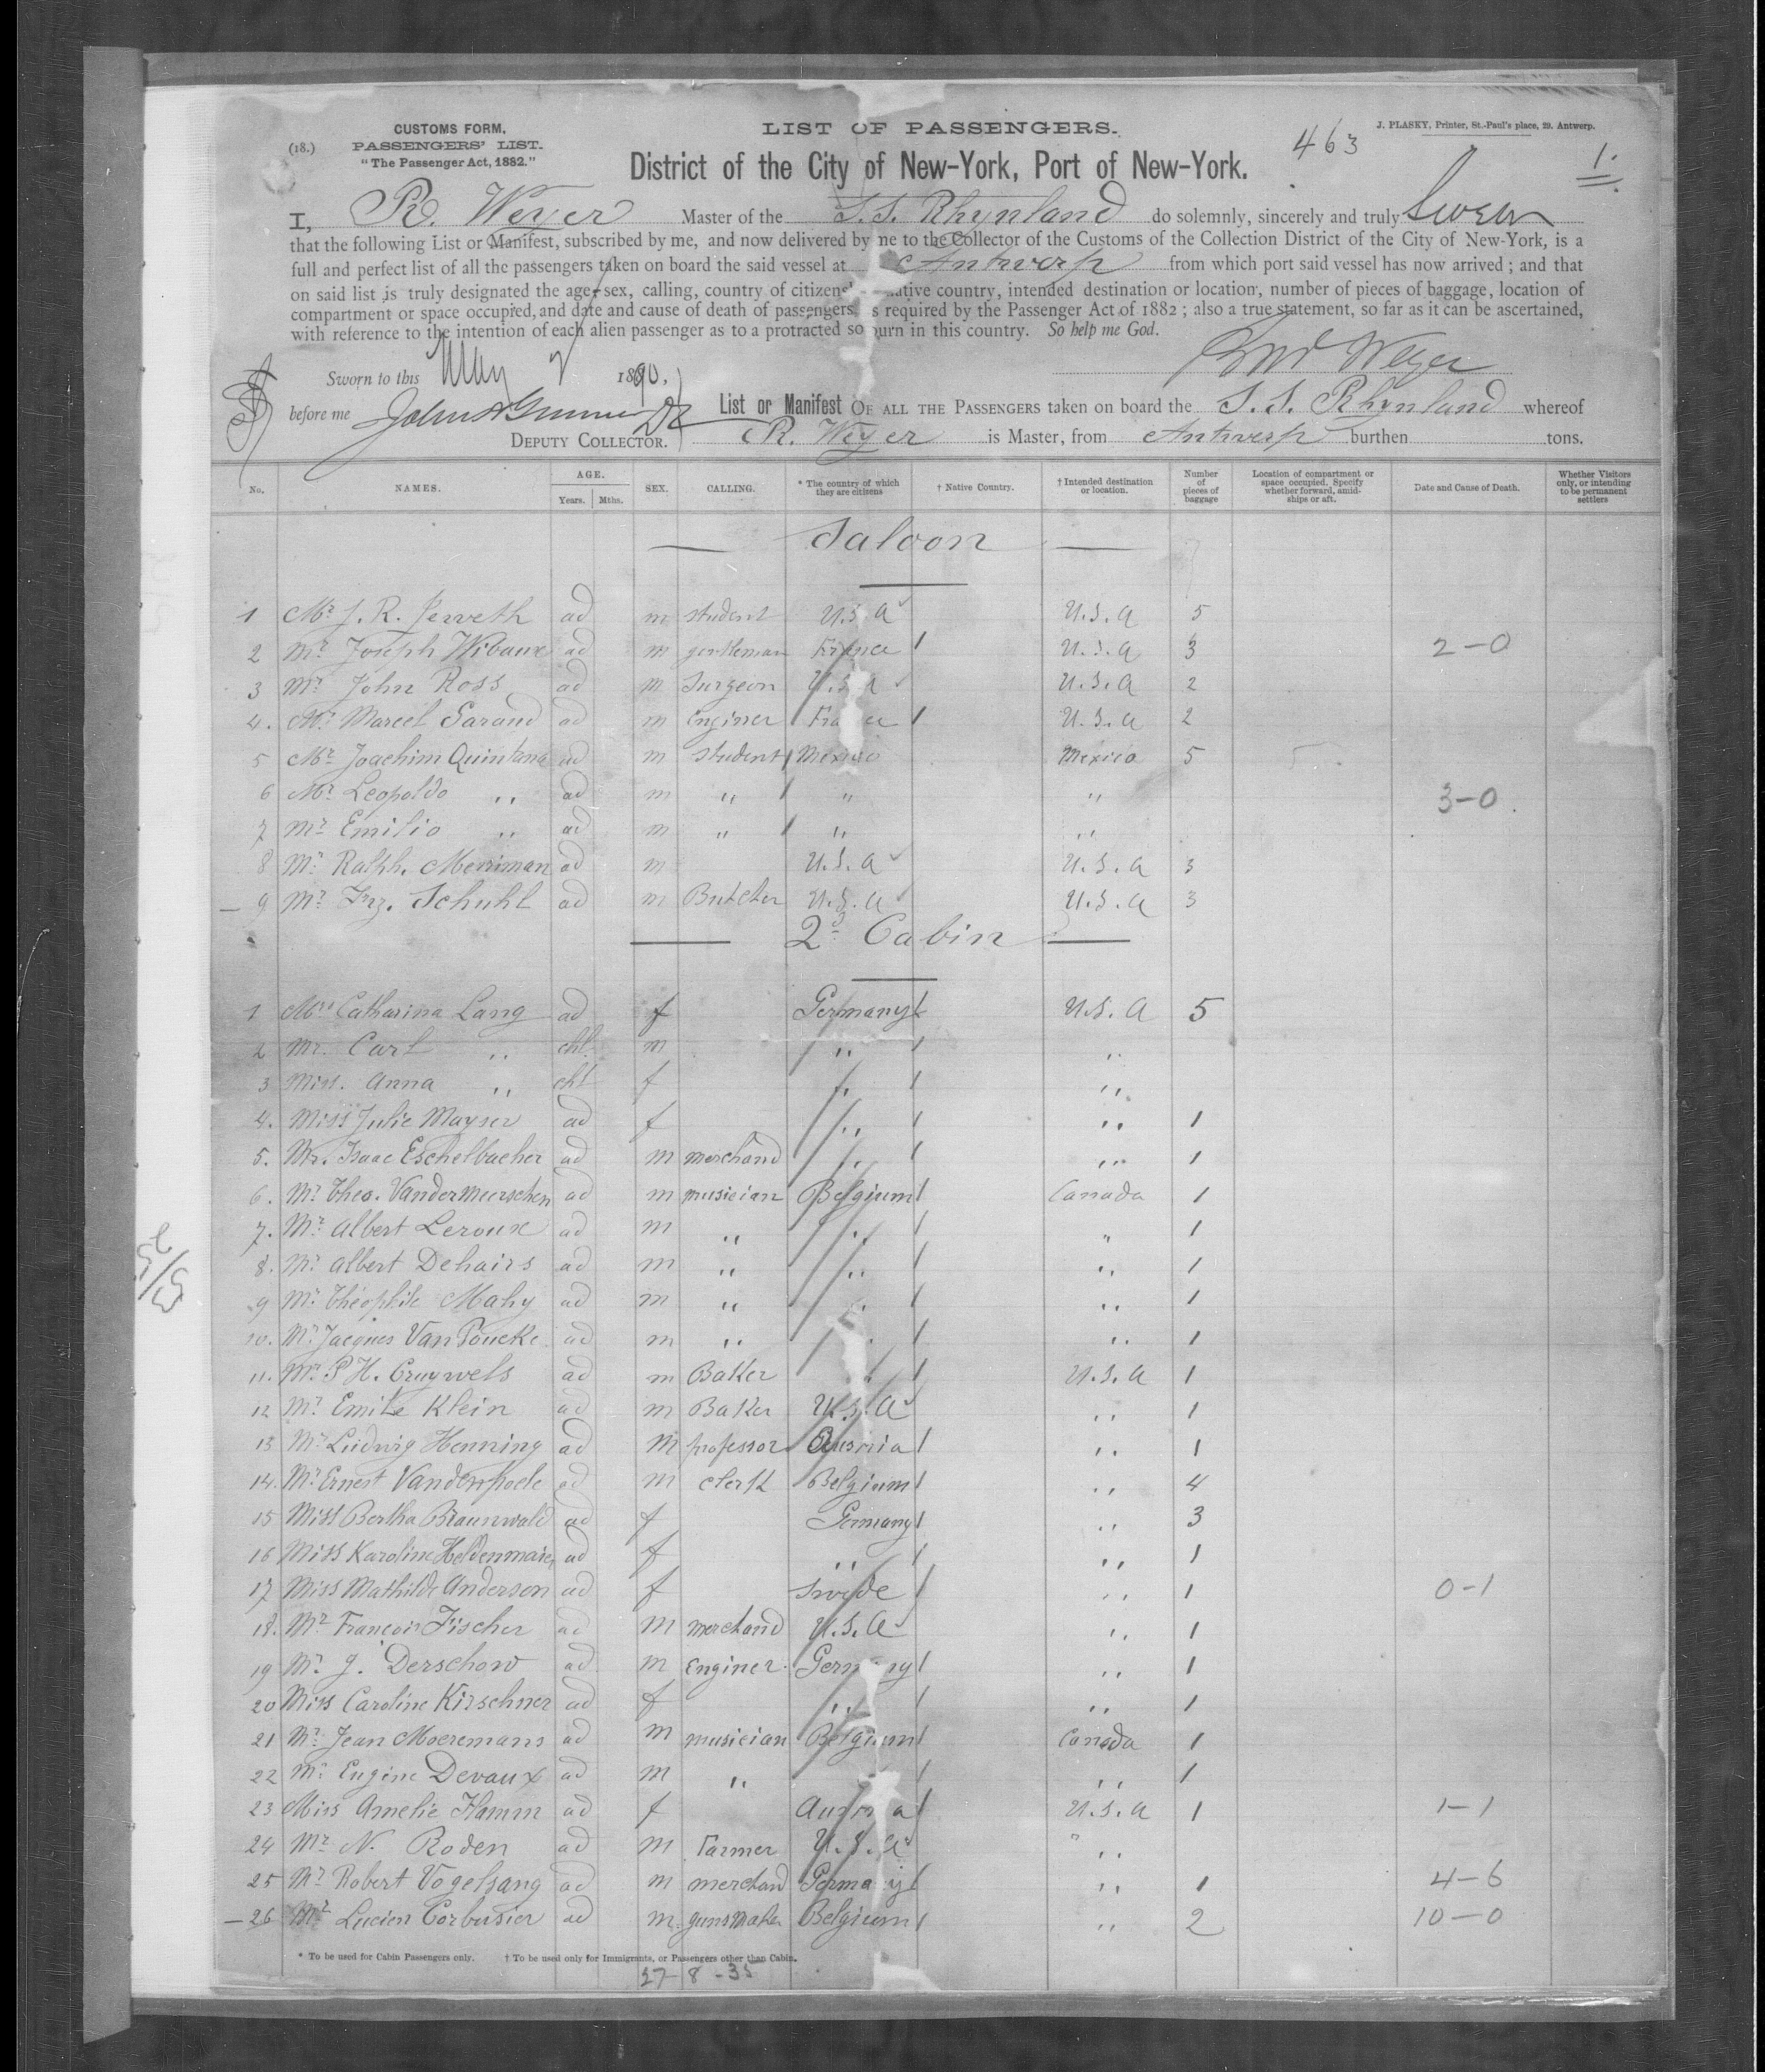 CUSTOMS FORM,
(18.) PASSENGERS' LIST.
"The Passenger Act, 1882."
LIST OF PASSENGERS.
District of the City of New-York, Port of New-York.
463
J. PLASKY, Printer, St.-Paul's place, 29. Antwerp.
1.
I, R. Weyer Master of the S.S. Rhynland do solemnly, sincerely and truly Swear
that the following List or Manifest, subscribed by me, and now delivered by me to the Collector of the Customs of the Collection District of the City of New-York, is a
full and perfect list of all the passengers taken on board the said vessel at Antwerp from which port said vessel has now arrived ; and that
on said list is truly designated the age, sex, calling, country of citizens native country, intended destination or location, number of pieces of baggage, location of
compartment or space occupied, and date and cause of death of passengers s required by the Passenger Act of 1882 ; also a true statement, so far as it can be ascertained,
with reference to the intention of each alien passenger as to a protracted so ourn in this country. So help me God.
Weyer
Sworn to this May 2 1890,
before me
DEPUTY COLLECTOR.
List or Manifest OF ALL THE PASSENGERS taken on board the S.S. Rhynland whereof
R. Weyer is Master, from Antwerp burthen tons.
No. NAMES. AGE. Years. Mths. SEX. CALLING. * The country of which they are citizens † Native Country. † Intended destination or location. Number of pieces of baggage Location of compartment or space occupied. Specify whether forward, amid-ships or aft. Date and Cause of Death. Whether Visitors only, or intending to be permanent settlers
Saloon
1 Mr J. R. ad m student U.S.A U.S.A 5
2 Mr Joseph Wibaux ad m gentleman France U.S.A 3 2-0
3 Mr John Ross ad m Surgeon U.S.A U.S.A 2
4. Mr Marcel Garand ad m Enginer France U.S.A 2
5 Mr Joachim Quintana ad m student Mexico Mexico 5
6 Mr Leopoldo " ad m " " " 3-0
7 Mr Emilio " ad m " " "
8 Mr Ralph. Merriman ad m U.S.A U.S.A 3
9 Mr Frz. Schuhl ad m Butcher U.S.A U.S.A 3
2d Cabin
1 Mrs Catharina Lang ad f Germany U.S.A 5
2 Mr. Carl " chl. m " "
3 Miss. Anna " chl f " "
4. Miss Julie Mayser ad f " " 1
5. Mr. Isaac Eschelbacher ad m merchand " " 1
6. Mr Theo. Vandermeerschen ad m musician Belgium Canada 1
7. Mr Albert Leroux ad m " " " 1
8. Mr Albert Dehairs ad m " " " 1
9 Mr Théophile Mahy ad m " " " 1
10. Mr Jacques Van Poucke ad m " " " 1
11. Mr P H. Cruywels ad m Baker " U.S.A 1
12 Mr Emile Klein ad m Baker U.S.A " 1
13 Mr Ludwig Henning ad m professor " 1
14. Mr Ernest Vandenpoele ad m clerk Belgium " 4
15 Miss Bertha Braunwald ad f Germany " 3
16 Miss Karoline Heldenmaier ad f " " 1
17 Miss Mathilde Anderson ad f Swede " 1 0-1
18. Mr Francois Fischer ad m merchand U.S.A " 1
19 Mr. J. Derschow ad m Enginer Germany " 1
20 Miss Caroline Kirschner ad f " " 1
21 Mr Jean Moeremans ad m musician Belgium Canada 1
22 Mr Eugène Devaux ad m " " 1
23 Miss Amelie Hamm ad f Austria U.S.A 1 1-1
24 Mr N. Roden ad m Farmer U.S.A "
25 Mr Robert Vogelsang ad m merchand Germany " 1 4-6
26 Mr Lucien Corbusier ad m gunsmaker Belgium " 2 10-0
* To be used for Cabin Passengers only. † To be used only for Immigrants, or Passengers other than Cabin.
27-8-35